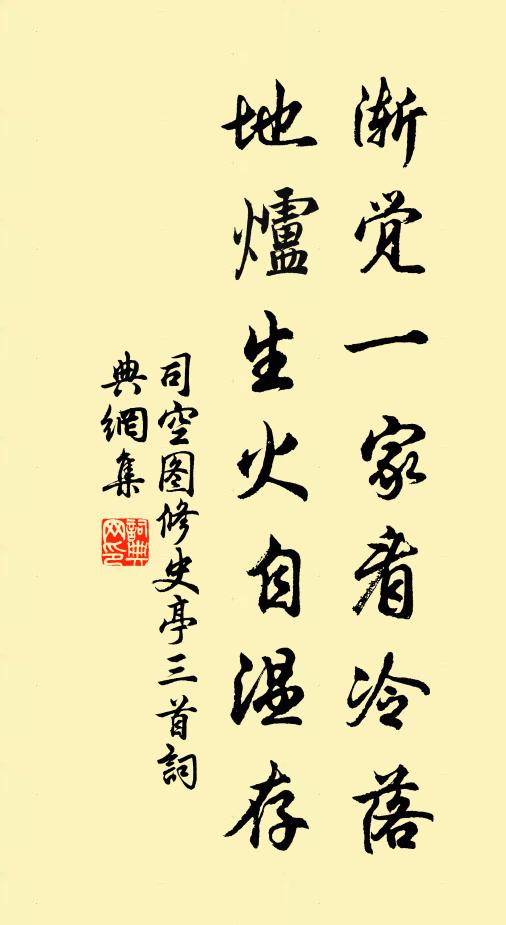 渐觉一家看冷落
地爐生火自温存
司空图修史亭三首詞
典網集
詞典
网印